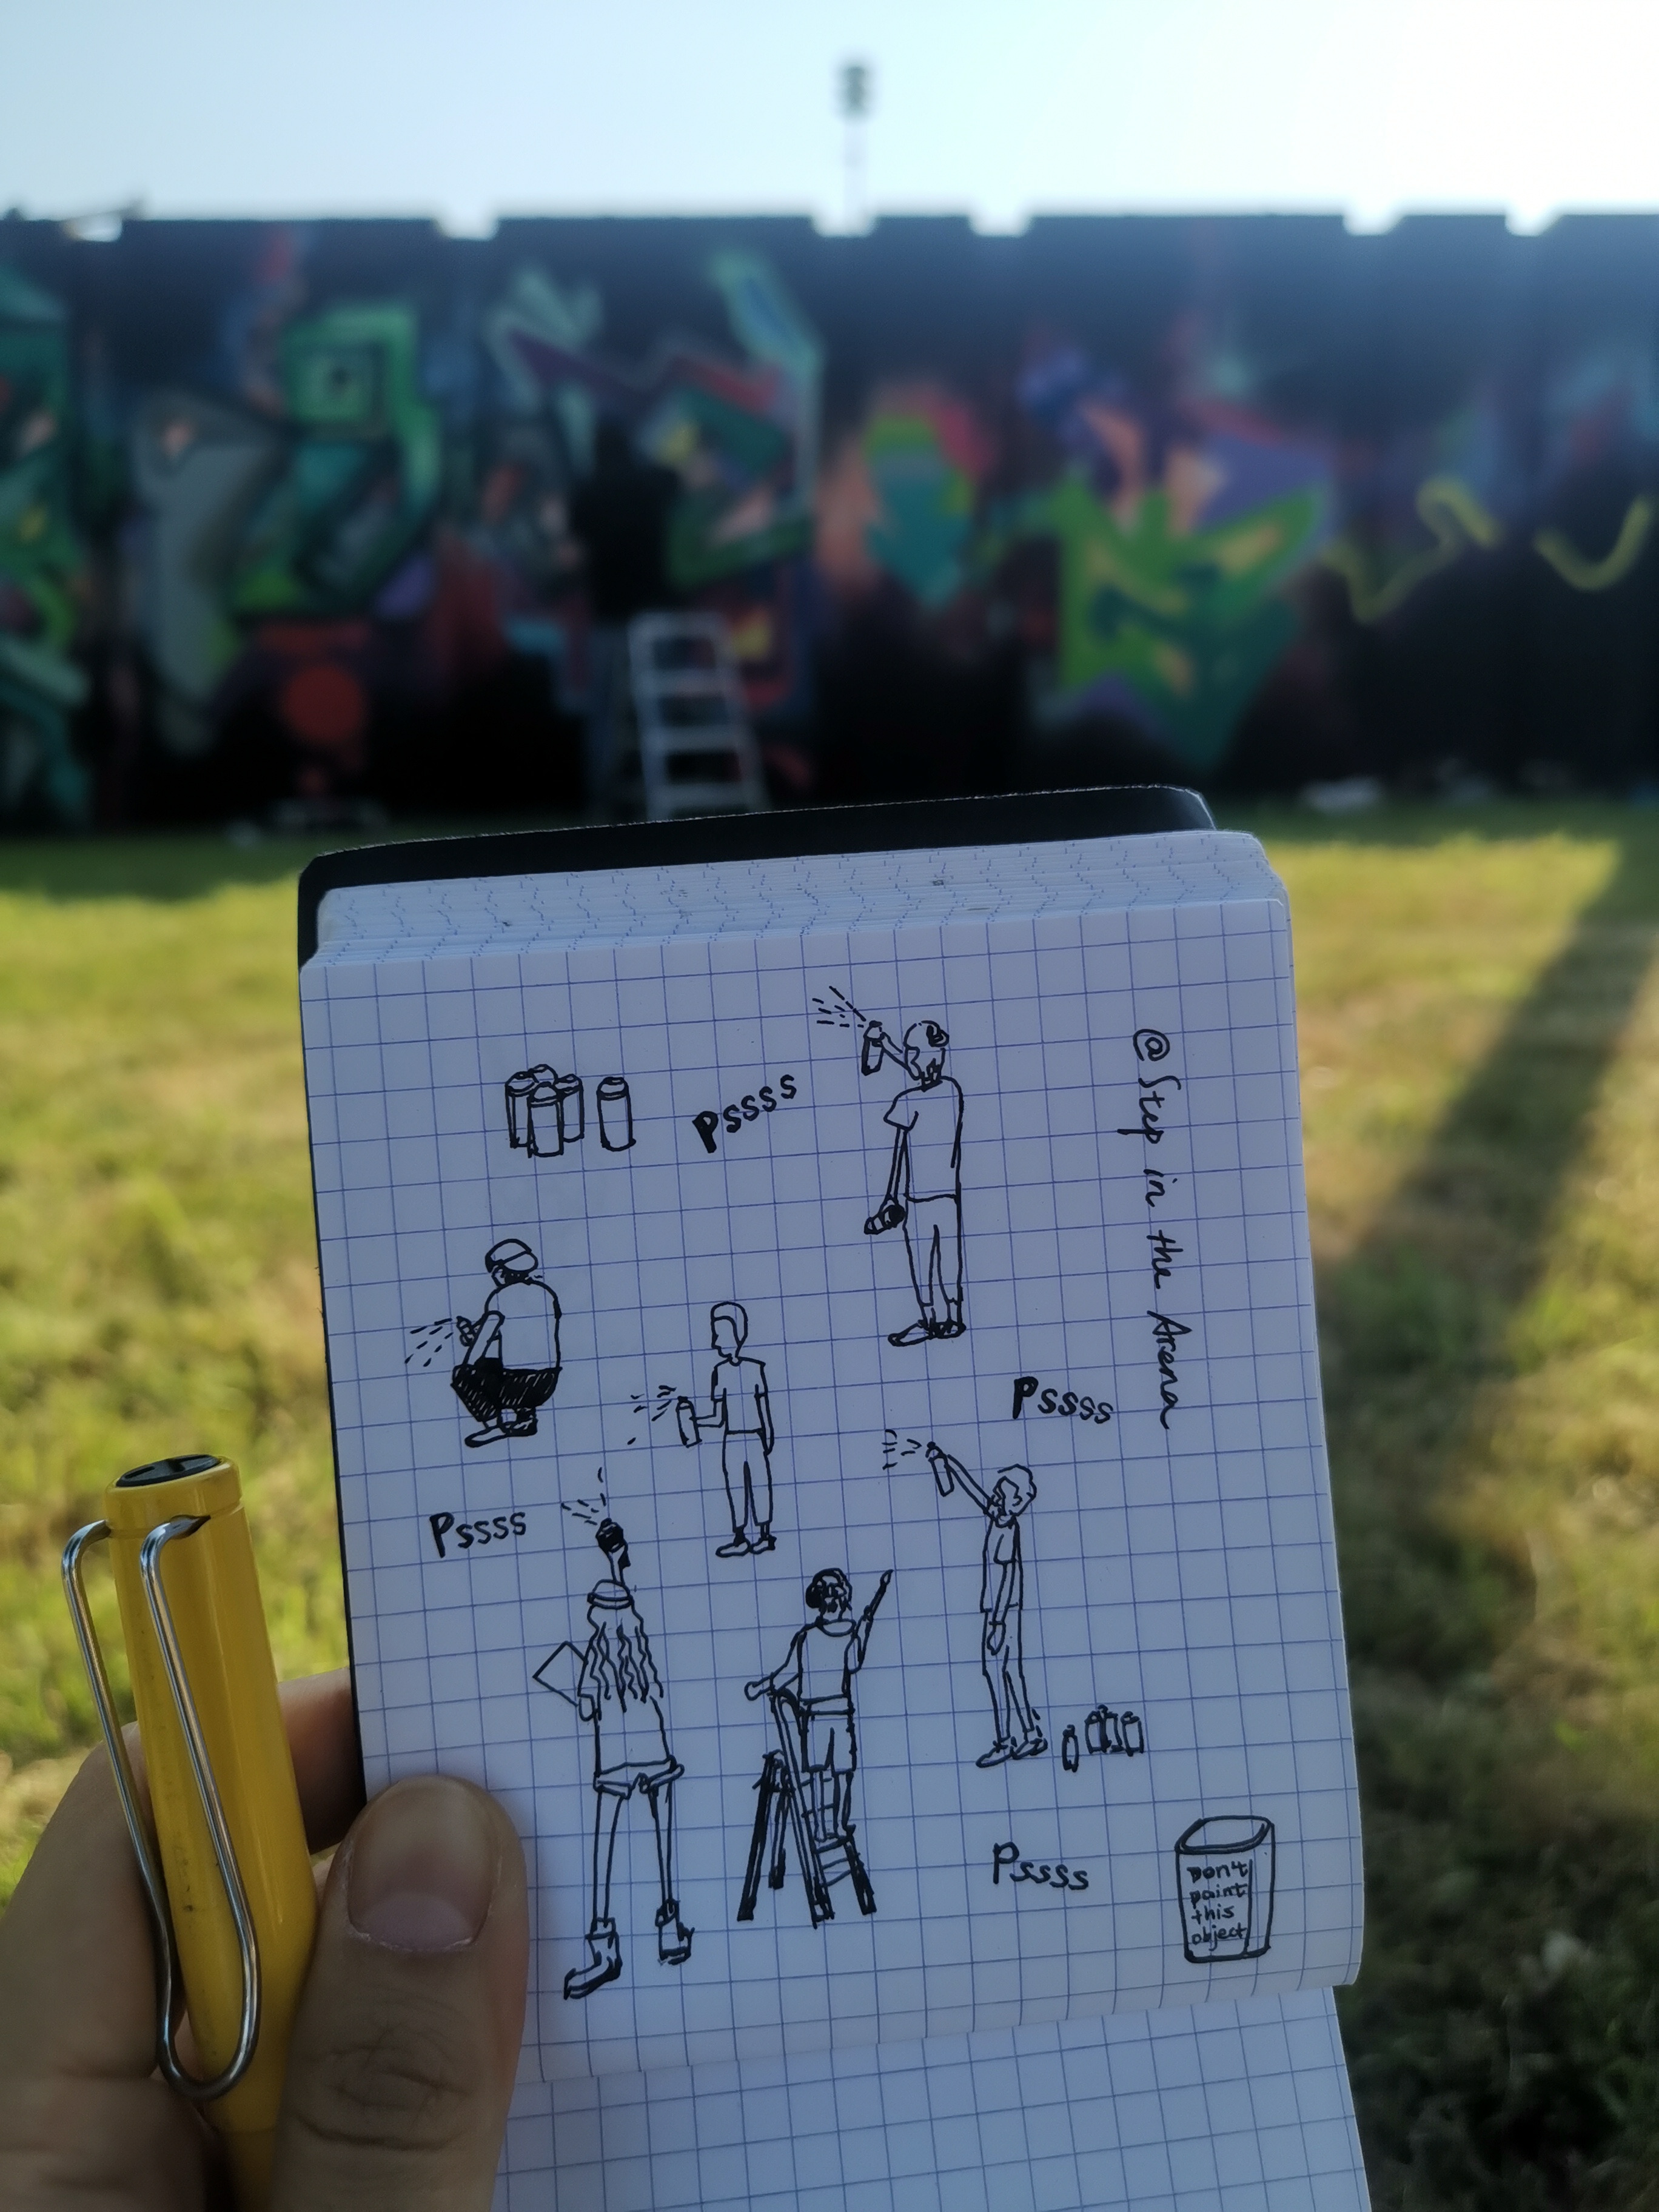 Pssss
@Step in the Arena
Pssss
Pssss
Pssss
Don't
paint
this
object